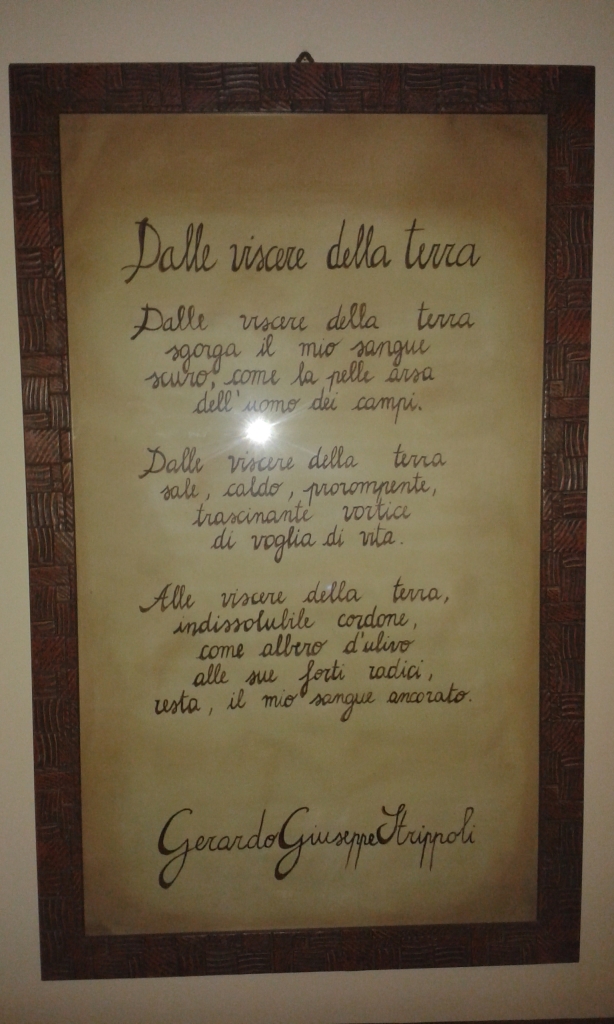 Dalle viscere della terra
Dalle viscere della terra
sgorga il mio sangue
scuro, come la pelle arsa
dell'uomo dei campi.
Dalle viscere della terra
sale, caldo, prorompente,
trascinante vortice
di voglia di vita.
Alle viscere della terra,
indissolubile cordone,
come albero d'ulivo
alle sue forti radici,
resta, il mio sangue ancorato.
Gerardo Giuseppe Strippoli